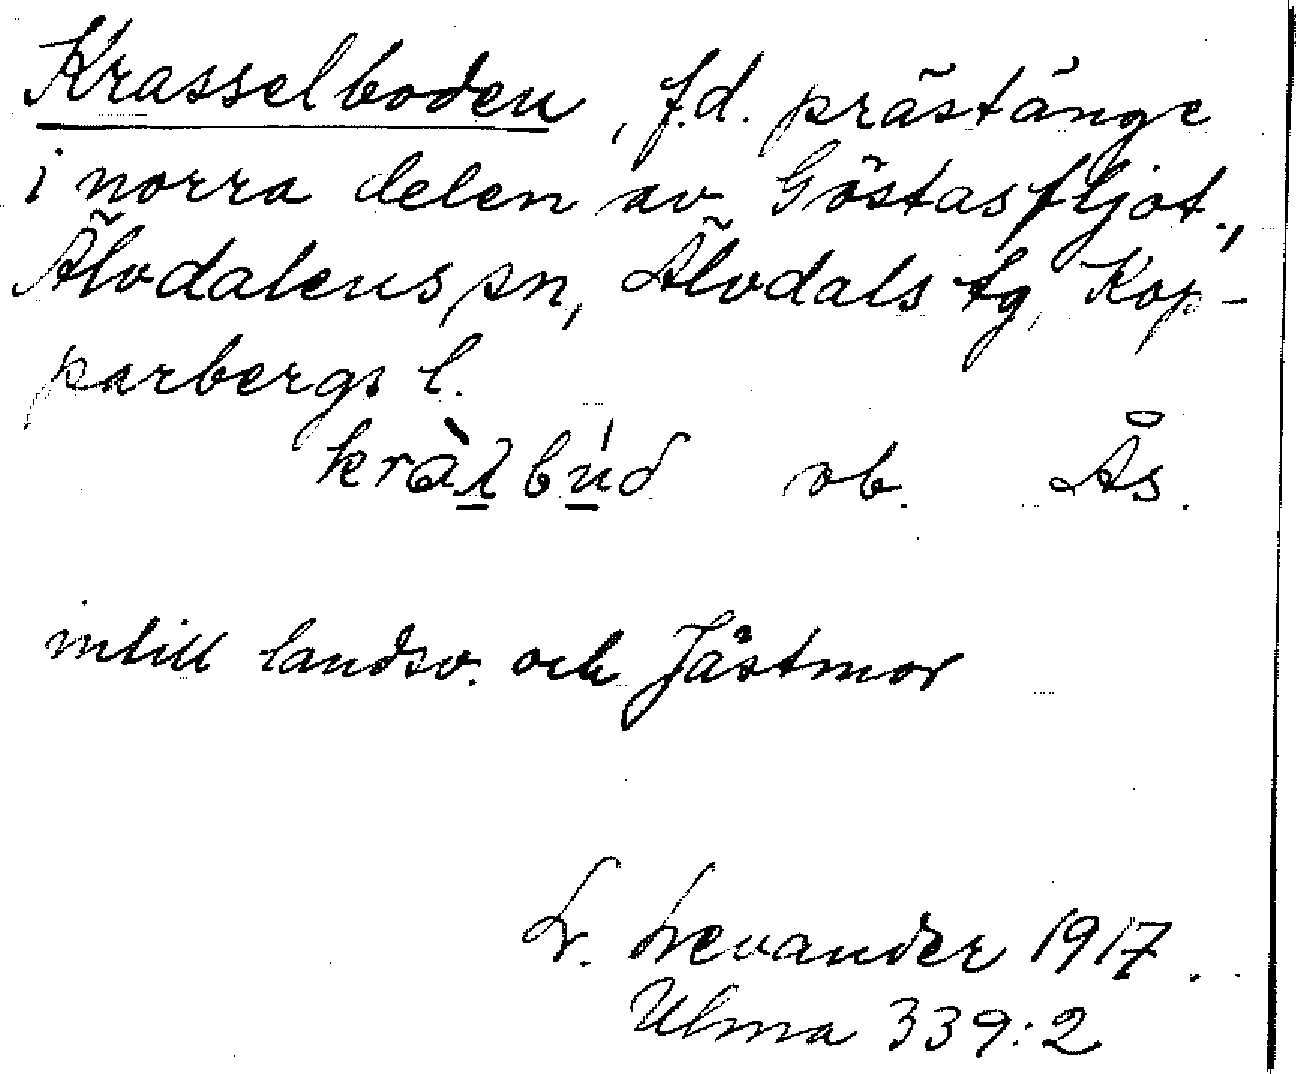 Krasselboden, f.d. prästänge
i norra delen av Göstasfljot.,
Älvdalens sn, Älvdals tg, Kop-
parbergs l.
ob. Ås.
intill landsv. och Jästmor
L. Levander 1917.
Ulma 339:2